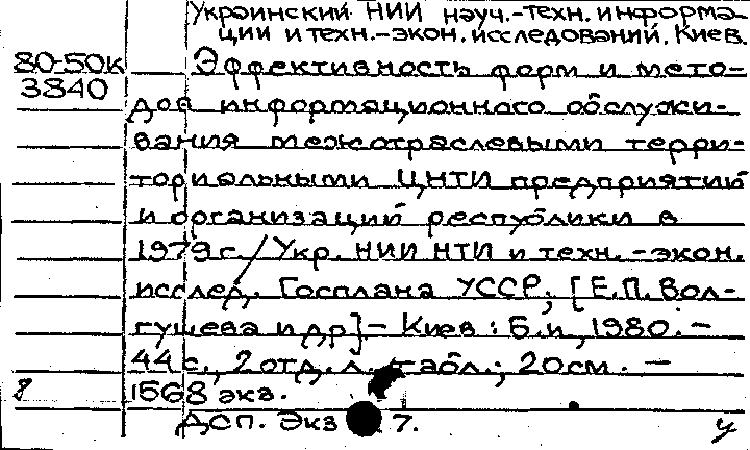 Украинский НИИ науч.-техн. информа-
ции и техн.-экон. исследований. Киев.
80-50к Эффективность форм и мето-
3840
дов информационного обслужи-
вания межотраслевыми терри-
ториальными ЦНТИ предприятий
и организаций республики в
1979 г. / Укр. НИИ НТИ и техн.-экон.
исслед. Госплана УССР; [Е.П. Вол-
гушева и др] - Киев : Б.и, 1980. -
44 с., 2 отд. л. табл.; 20 см. -
8 1568 экз.
ДСП. Экз 7. у